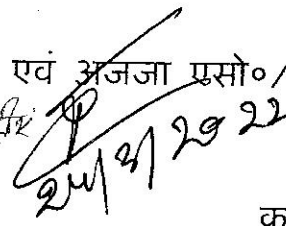 एवं अजजा एसो०/
24/3/2022
क